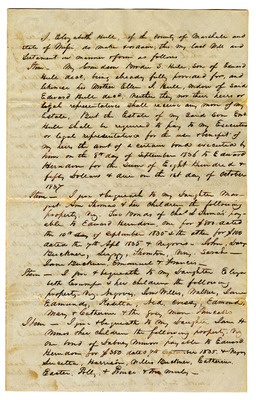 I, Elizabeth Hull, of the County of Marshall and
State of Mipi do make & ordain this my last Will and
Testament in manner & form as follows.
Item - My Grandson Brodie S Hull Son of Edward
Hull decd, being already fully provided for, and
likewise his Mother Ellen I Hull, widow of said
Edward Hull decd. Neither the nor their heirs or
legal representatives shall receive any more of my
Estate, But the Estate of my said Son
Hull shall be required to pay to my Executor
or legal representatives for the use & benefit of
my heirs the amt of a certain bond executed by
him on the 8th day of September 1836 to Edward
Herndon for the Sum of Eight Hundred &
fifty Dollars & due on the 1st day of October
1837
Item - I give & bequeath to my Daughter
Ann Thomas & her children the following
property, viz. Two Bonds of Thomas pay-
able to Edward Herndon one for $80 dated
the 10th day of September 1835 & the other for $100
dated the 7th Sept 1835 & Negroes - John, Sam
Buckner, Lucy, Thornton, Mary, Sarah
Sam Buckner, Emmanuel & Frances
Item - I give & bequeath to my Daughter Eliza
beth & her children the following
property viz Negroes, Willis, Walker, Sam
Edmund, Ralston, Ned, Edmond,
Mary & Catherine & the grey mare
Item - I give & bequeath to my Daughter H
Minor & her children the following property viz
One bond of Dabney Minor payable to Edward
Herndon for $350 dated 1835 & Negroes
Harrison, Willis Buckner, Catherine
Easter, Polly, & Power & two mules,